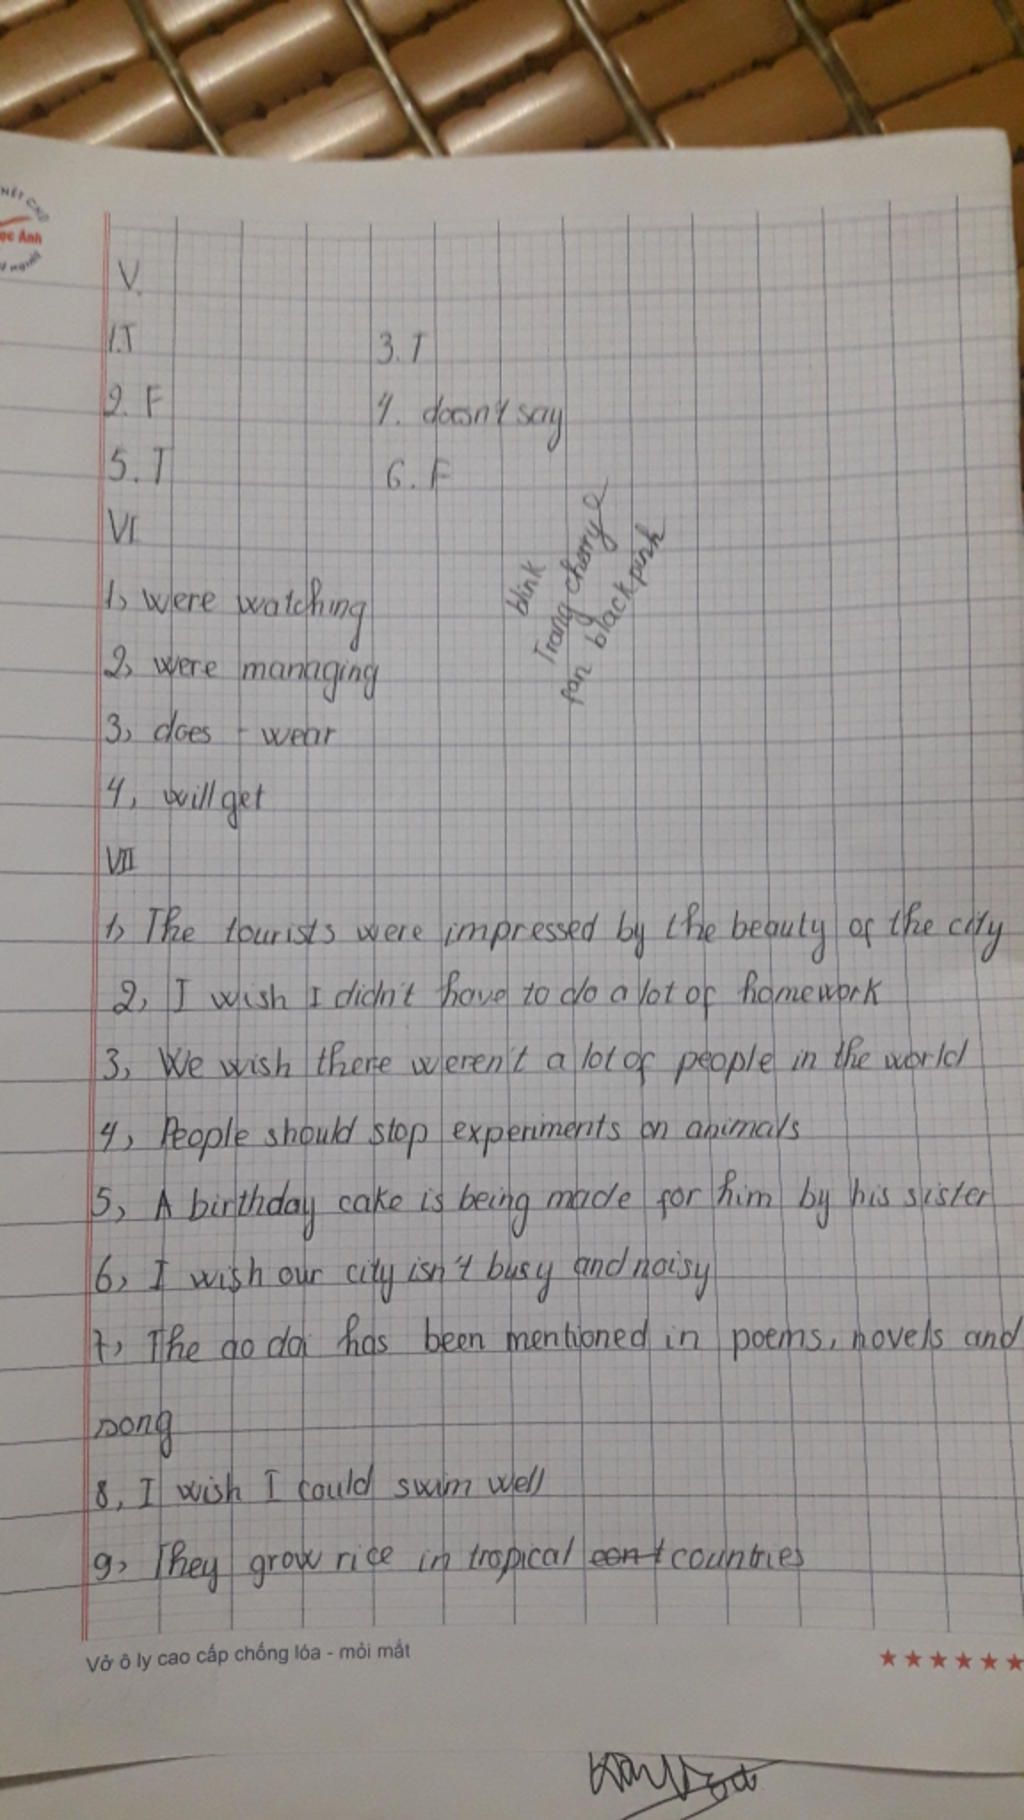 V.
1.T
3. T
2. F
4. doesn't say
5. T
6. F
VI
blink
Trang cherry
fan blackpink
1, were watching
2, were managing
3, does - wear
4, will get
VII
1, The tourists were impressed by the beauty of the city
2, I wish I didn't have to do a lot of homework
3, We wish there weren't a lot of people in the world
4, People should stop experiments on animals
5, A birthday cake is being made for him by his sister
6, I wish our city isn't busy and noisy
7, The ao dai has been mentioned in poems, novels and
song
8, I wish I could swim well
9, They grow rice in tropical cont countries
Vở ô ly cao cấp chống lóa - mỏi mắt